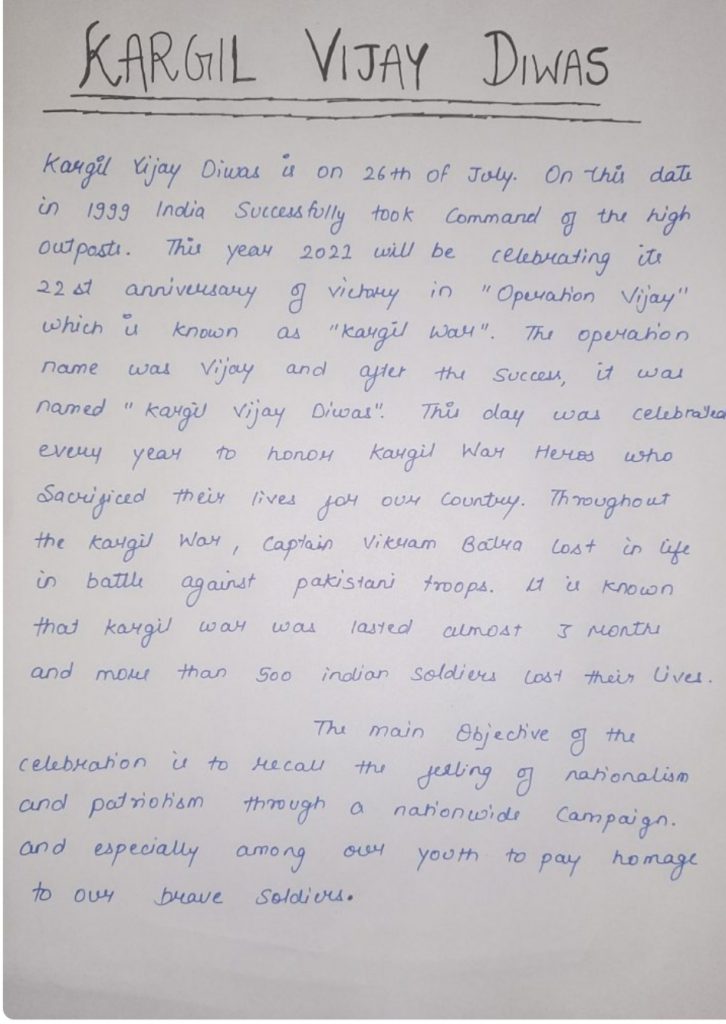 KARGIL VIJAY DIWAS
Kargil Vijay Diwas is on 26th of July. On this date
in 1999 India Successfully took Command of the high
outposts. This year 2022 will be celebrating its
22st anniversary of victory in "Operation Vijay"
which is known as "Kargil War". The operation
name was Vijay and after the Success, it was
named "Kargil Vijay Diwas". This day was celebrated
every year to honor Kargil War Heros who
Sacrificed their lives for our Country. Throughout
the Kargil War, Captain Vikram Batra lost in life
in battle against pakistani troops. It is known
that kargil war was lasted almost 3 Months
and more than 500 indian Soldiers lost their lives.
The main Objective of the
celebration is to recall the feeling of nationalism
and patriotism through a nationwide Campaign.
and especially among our youth to pay homage
to our brave Soldiers.